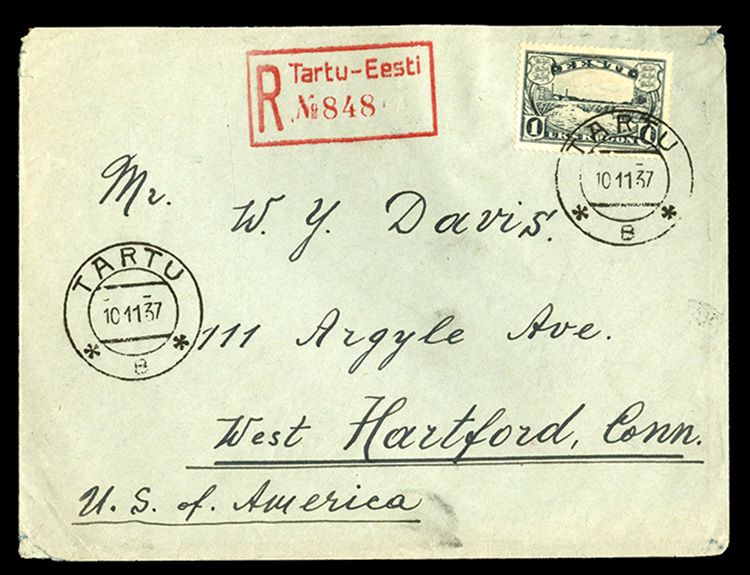 R Tartu-Eesti
№848
EESTI
1 ÜKS KROON 1
TARTU
10 11 37
B
Mr. W. Y. Davis.
TARTU
10 11 37
B
111 Argyle Ave.
West Hartford, Conn.
U. S. of. America